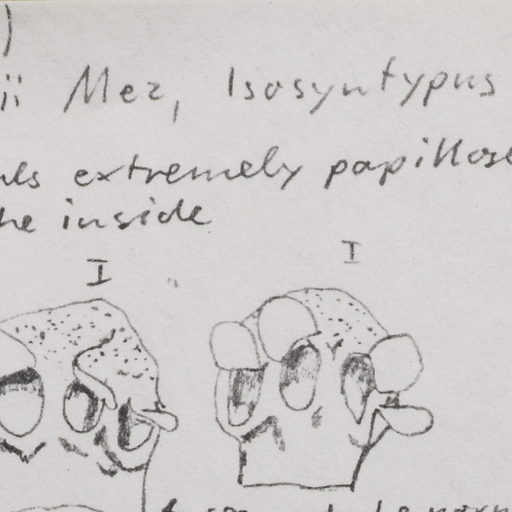 )
ii Mez, Isosyntypus
extremely papillose
he inside
I I